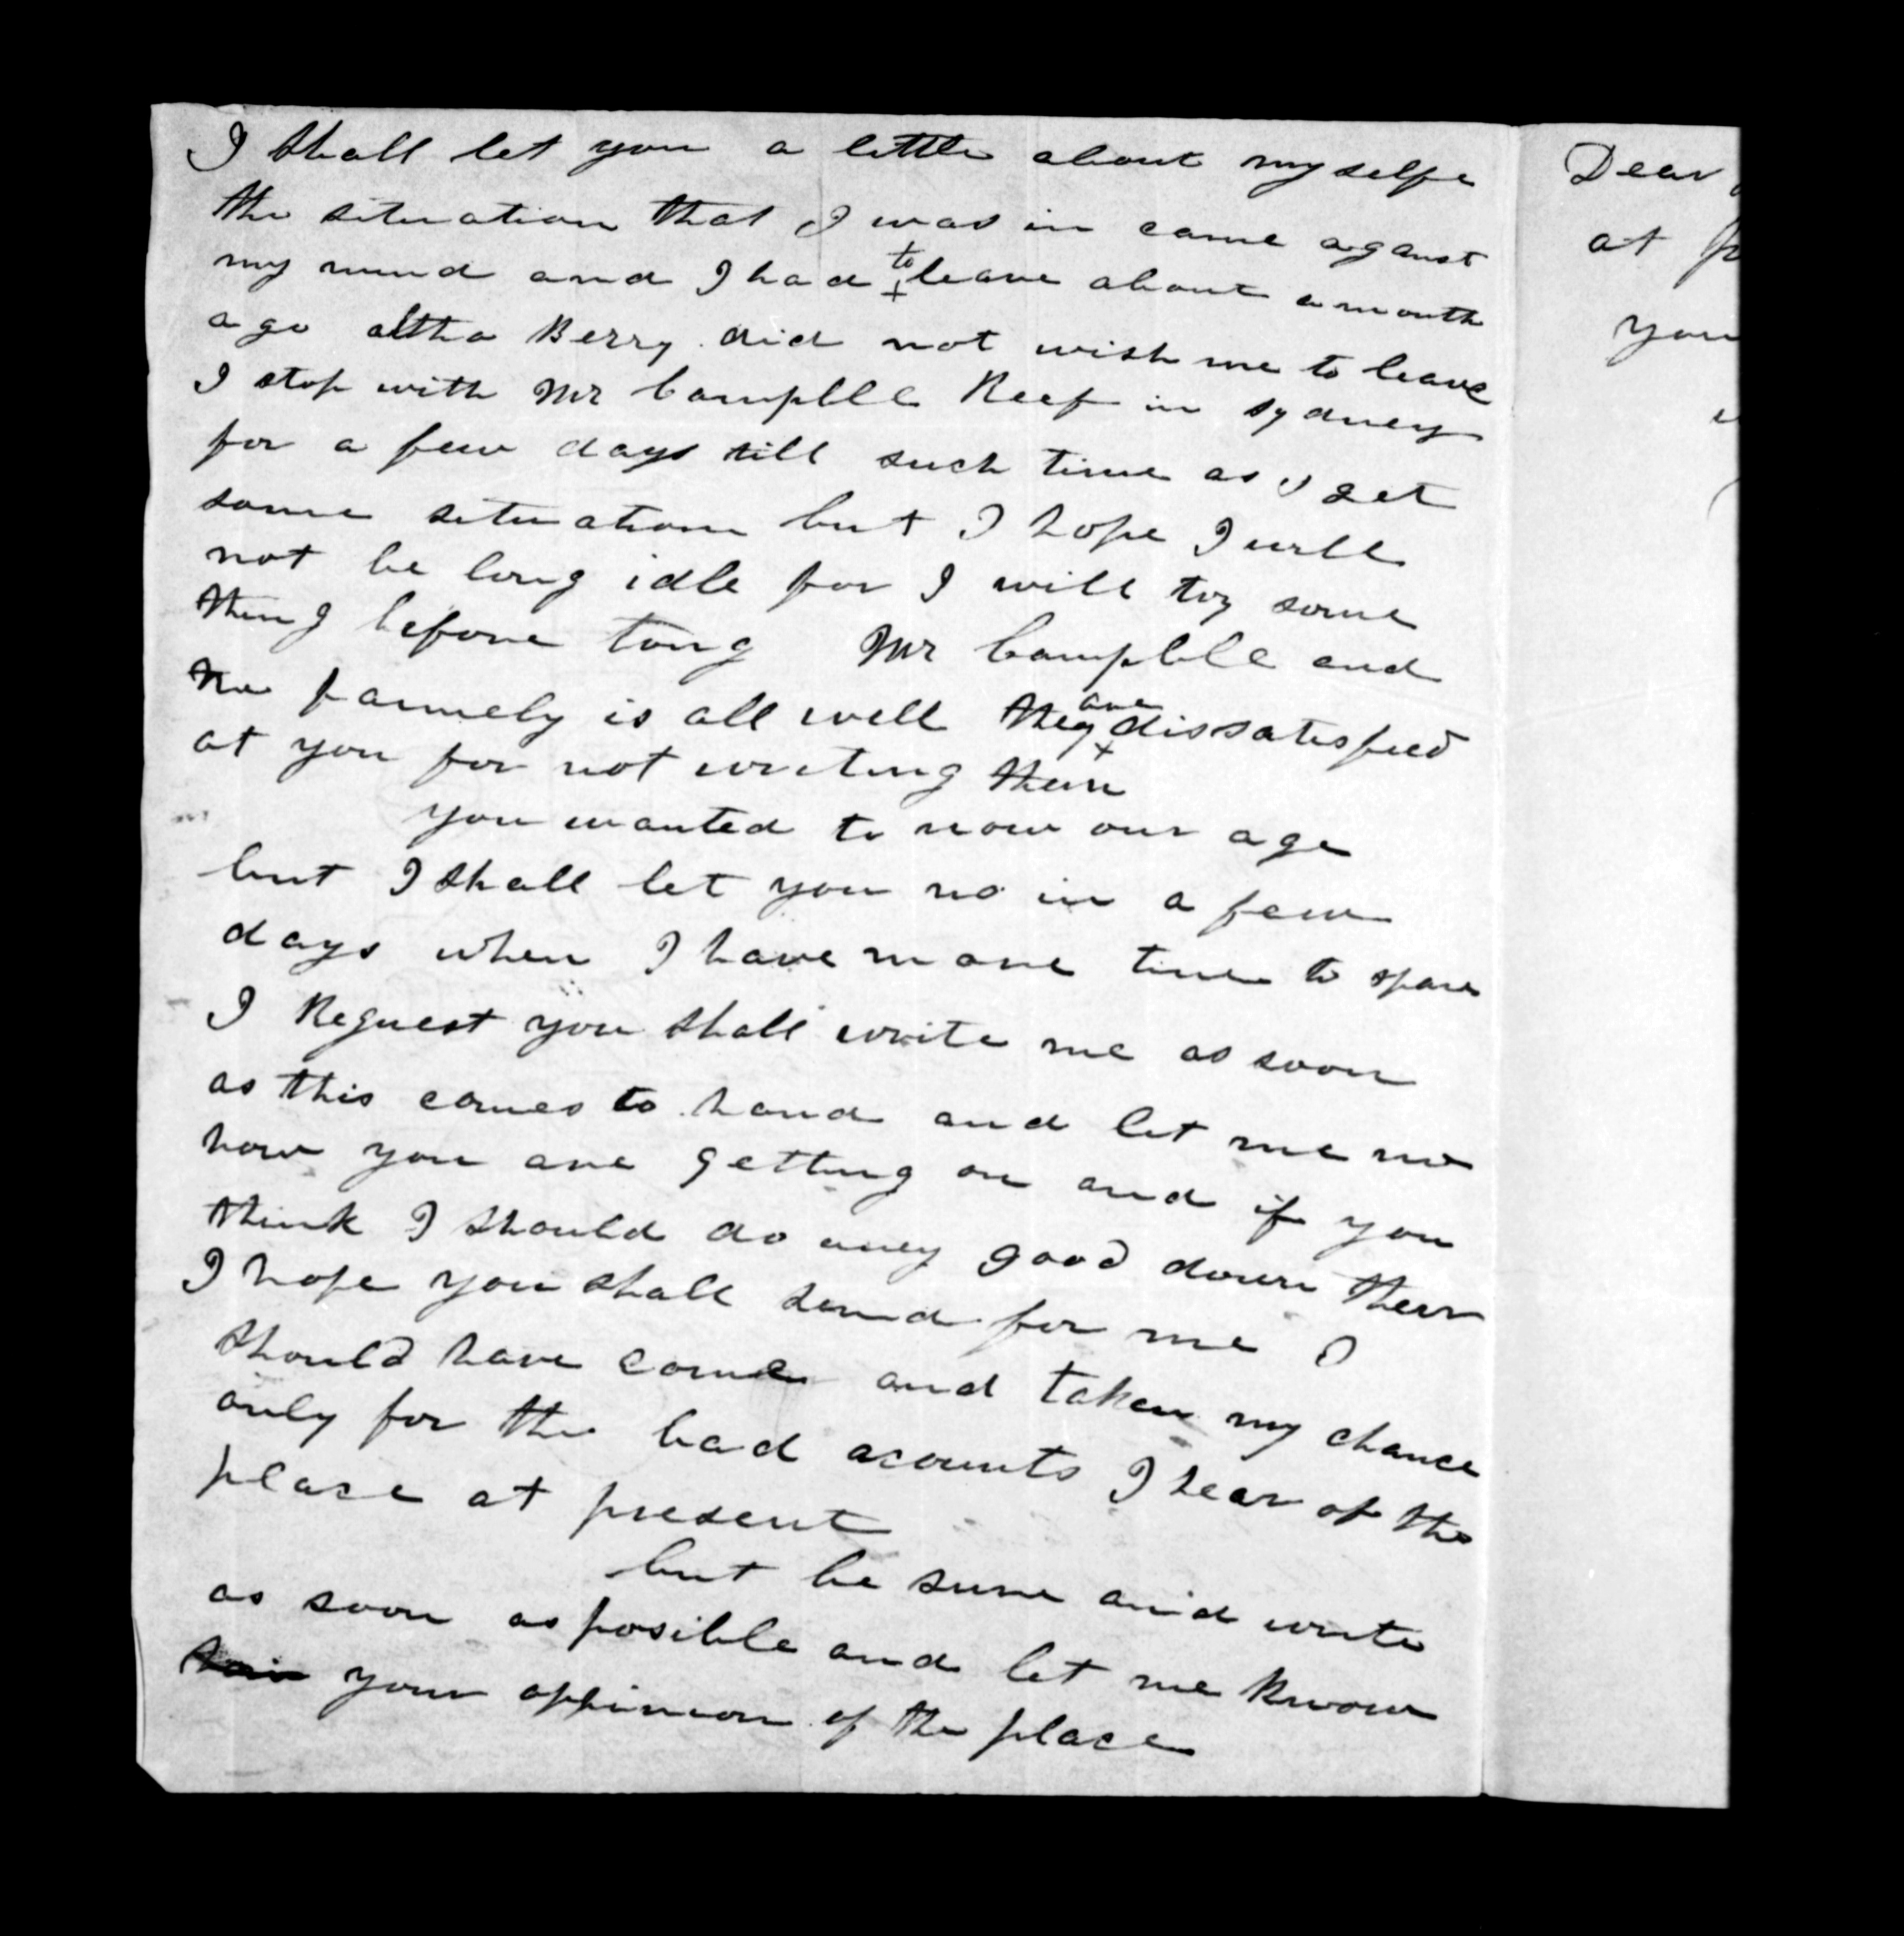 I shall let you a little about my selfe
the situation that I was in came aganst
my mind and I had to leave about a month
ago altho Berry did not wish me to leave
I stop with Mr Campblle Keep in sydney
for a few days till such time as I get
some situation but I hope I will
not be long idle for I will try some
thing before long Mr Campblle and
the famely is all well they are dissatisfied
at you for not writing them
you wanted to now our age
but I shall let you no in a few
days when I have more time to spare
I Request you shall write me as soon
as this comes to hand and let me no
how you are getting on and if you
think I should do aney good down thear
I hope you shall send for me I
should have come and taken my chance
only for the bad acounts I hear of the
place at present
but be sure and write
as soon as posible and let me know
your oppinion of the place
Dear
at
you